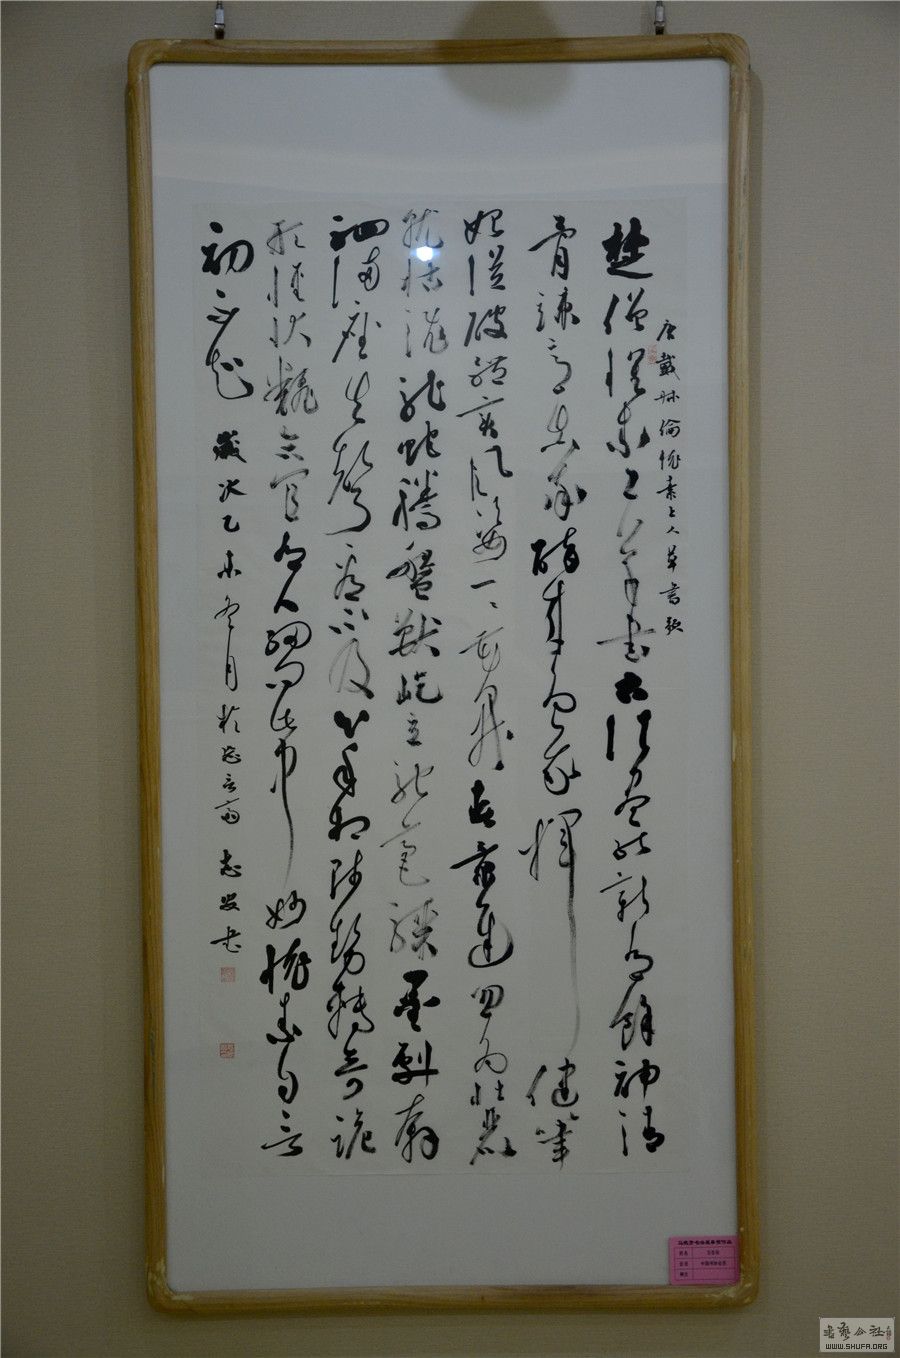 唐戴叔倫懷素上人草書歌
楚僧懷素工草書古法盡能新有餘神清
骨竦意真率醉來為我揮健筆
始從破體變風姿一一花開春景遲忽為壯麗
就枯澀龍蛇騰盤獸屹立馳毫驟墨劇奔
駟滿座失聲看不及心手相師勢轉奇詭
形怪狀翻合宜有人細問此中妙懷素自言
初不知 歲次乙未冬月於 志 書
WWW.SHUFA.ORG